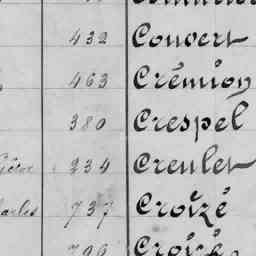 432 Convert
463 Crémion
380 Crespel
334 Creulet
737 Croizé